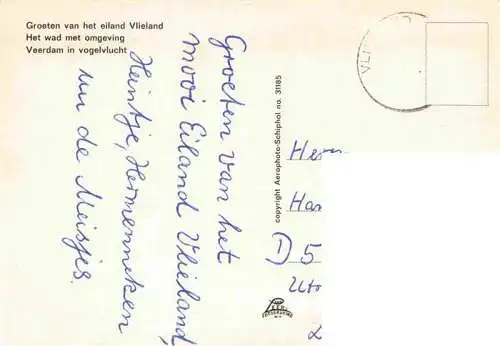 Groeten van het eiland Vlieland
Het wad met omgeving
Veerdam in vogelvlucht
Groeten van het
mooi Eiland Vlieland,
Heintje, Hermenneken
un de Meisjes.
copyright Aerophoto-Schiphol no. 31185
VLI
Herrn
Han
D 5